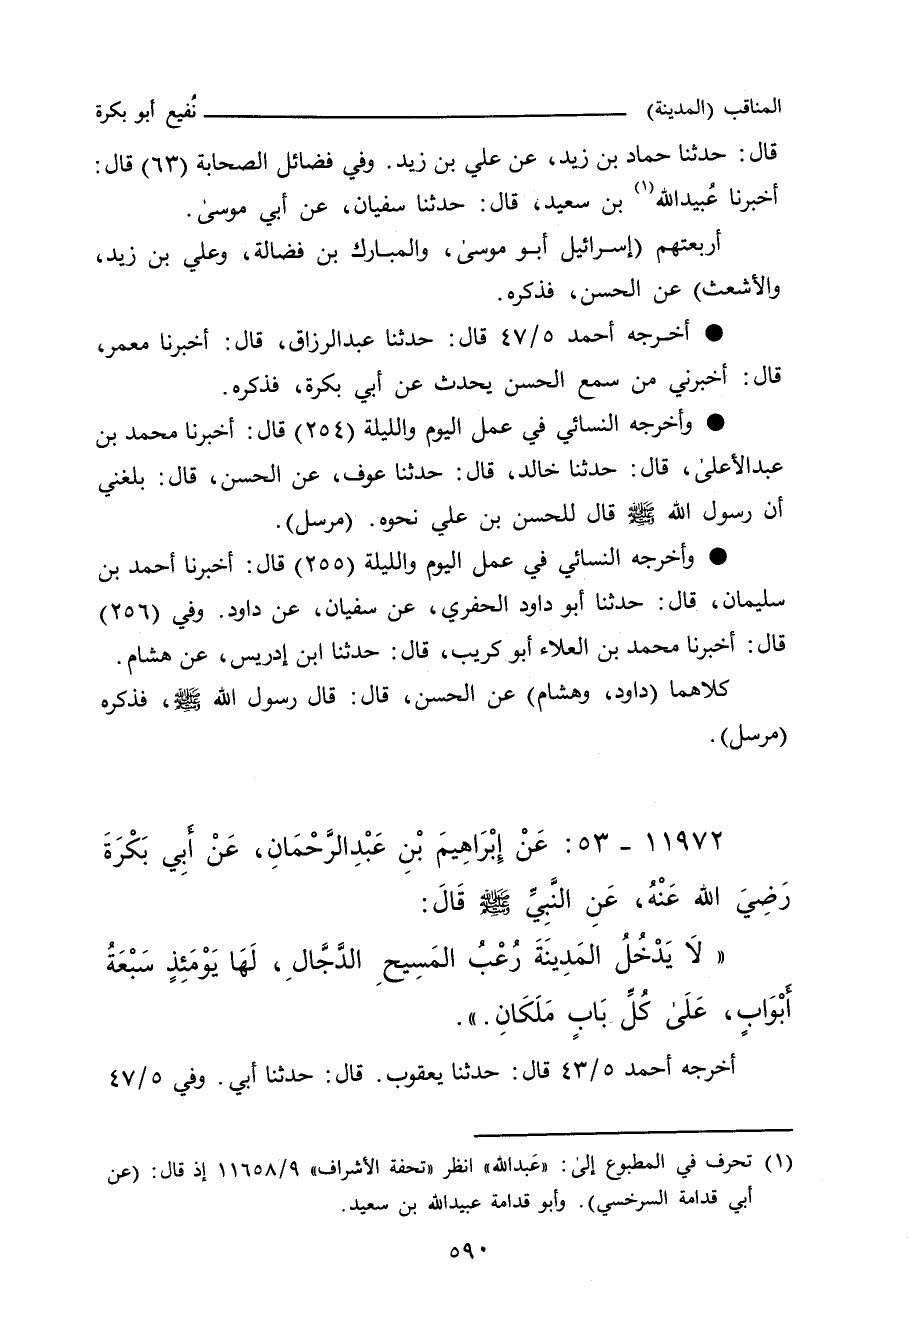 المناقب (المدينة) ــــــــــــــــــــــــــــــــــــــــ نُفيع أبو بكرة
قال: حدثنا حماد بن زيد، عن علي بن زيد. وفي فضائل الصحابة (٦٣) قال:
أخبرنا عُبيدالله(١) بن سعيد، قال: حدثنا سفيان، عن أبي موسىٰ.
أربعتهم (إسرائيل أبو موسىٰ، والمبارك بن فضالة، وعلي بن زيد،
والأشعث) عن الحسن، فذكره.
● أخرجه أحمد ٤٧/٥ قال: حدثنا عبدالرزاق، قال: أخبرنا معمر،
قال: أخبرني من سمع الحسن يحدث عن أبي بكرة، فذكره.
● وأخرجه النسائي في عمل اليوم والليلة (٢٥٤) قال: أخبرنا محمد بن
عبدالأعلىٰ، قال: حدثنا خالد، قال: حدثنا عوف، عن الحسن، قال: بلغني
أن رسول الله ﷺ قال للحسن بن علي نحوه. (مرسل).
● وأخرجه النسائي في عمل اليوم والليلة (٢٥٥) قال: أخبرنا أحمد بن
سليمان، قال: حدثنا أبو داود الحفري، عن سفيان، عن داود. وفي (٢٥٦)
قال: أخبرنا محمد بن العلاء أبو كريب، قال: حدثنا ابن إدريس، عن هشام.
كلاهما (داود، وهشام) عن الحسن، قال: قال رسول الله ﷺ، فذكره
(مرسل).
١١٩٧٢ - ٥٣: عَنْ إِبْرَاهِيمَ بْنِ عَبْدِالرَّحْمَانِ، عَنْ أَبِي بَكْرَةَ
رَضِيَ الله عَنْهُ، عَنِ النَّبِيِّ ﷺ قَالَ:
« لَا يَدْخُلُ المَدِينَةَ رُعْبُ المَسِيحِ الدَّجَّالِ، لَهَا يَوْمَئِذٍ سَبْعَةُ
أَبْوَابٍ، عَلَىٰ كُلِّ بَابٍ مَلَكَانِ.».
أخرجه أحمد ٤٣/٥ قال: حدثنا يعقوب. قال: حدثنا أبي. وفي ٤٧/٥
(١) تحرف في المطبوع إلىٰ: «عَبدالله» انظر «تحفة الأشراف» ١١٦٥٨/٩ إذ قال: (عن
أبي قدامة السرخسي). وأبو قدامة عبيدالله بن سعيد.
٥٩٠